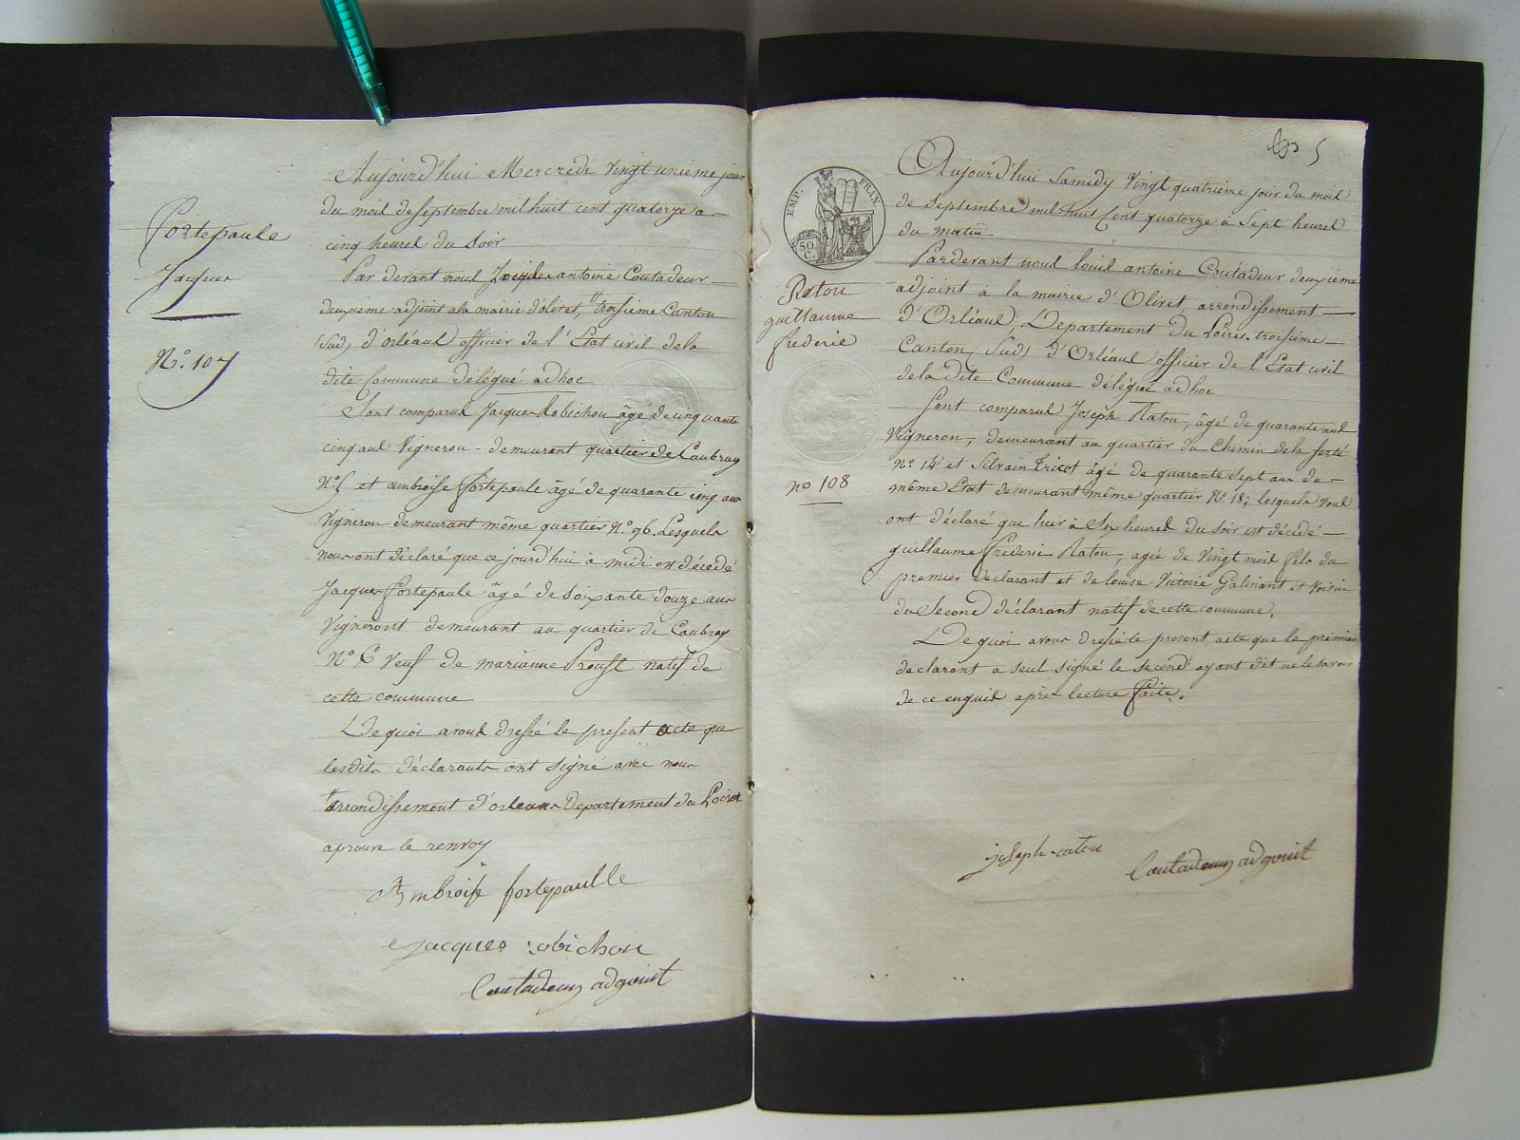 Fortepaule
Jacques
N.° 107
Aujourd'hui Mercredi Vingt unieme jour
du mois de septembre mil huit cent quatorze a
cinq heures du soir
Par devant nous antoine Coutadeur
deuxieme adjoint a la mairie d'olivet, troisieme Canton
(Sud) d'orléans officier de l'Etat civil de la
dite Commune délégué adhoc
Sont comparus Jacques Robichon âgé de cinquante
cinq ans Vigneron demeurant quartier de Caubray
N.° 5 et ambroise fortepaule âgé de quarante cinq ans
Vigneron demeurant même quartier N.° 96. Lesquels
nous ont déclaré que ce jourd'hui à midi est décédé
Jacques Fortepaule âgé de soixante douze ans
Vigneront demeurant au quartier de Caubray
N.° 6 Veuf de marianne Proust natif de
cette commune
De quoi avons dressé le present acte que
lesdits déclarants ont signé avec nous
arrondissement d'orleans departement du Loiret
aprouve le renvoy
Ambroise fortepaulle
Jacques robichon
Coutadeur adgouint
5
EMP. FRAN.
50
C.
Raton
guillaume
frederic
no 108
Aujourd'hui Samedy Vingt quatrieme jour du mois
de Septembre mil huit Cent quatorze à Sept heures
du matin
Pardevant nous louis antoine Coutadeur deuxieme
adjoint à la mairie d'Olivet, arrondissement
d'Orléans, Departement du Loiret, troisieme
Canton (Sud) d'Orléans officier de l'Etat civil
de la dite Commune délégué adhoc
Sont comparus Joseph Raton, âgé de quarante ans
Vigneron, demeurant au quartier du Chemin de la ferté
N.° 14 et Silvain Tricot âgé de quarante sept ans de
même Etat demeurant même quartier N.° 18; lesquels nous
ont déclaré que hier à Six heures du soir est décédé
guillaume frederic Raton, agée de Vingt mois fils du
premier declarant et de louise Victoire Galinant et Voisin
du Second déclarant natif de cette commune.
De quoi avons dressé le present acte que le premier
declarant a seul signé le second ayant dit ne le savoir
de ce enquis après lecture faite.
joseph raton
Coutadeur adgouint